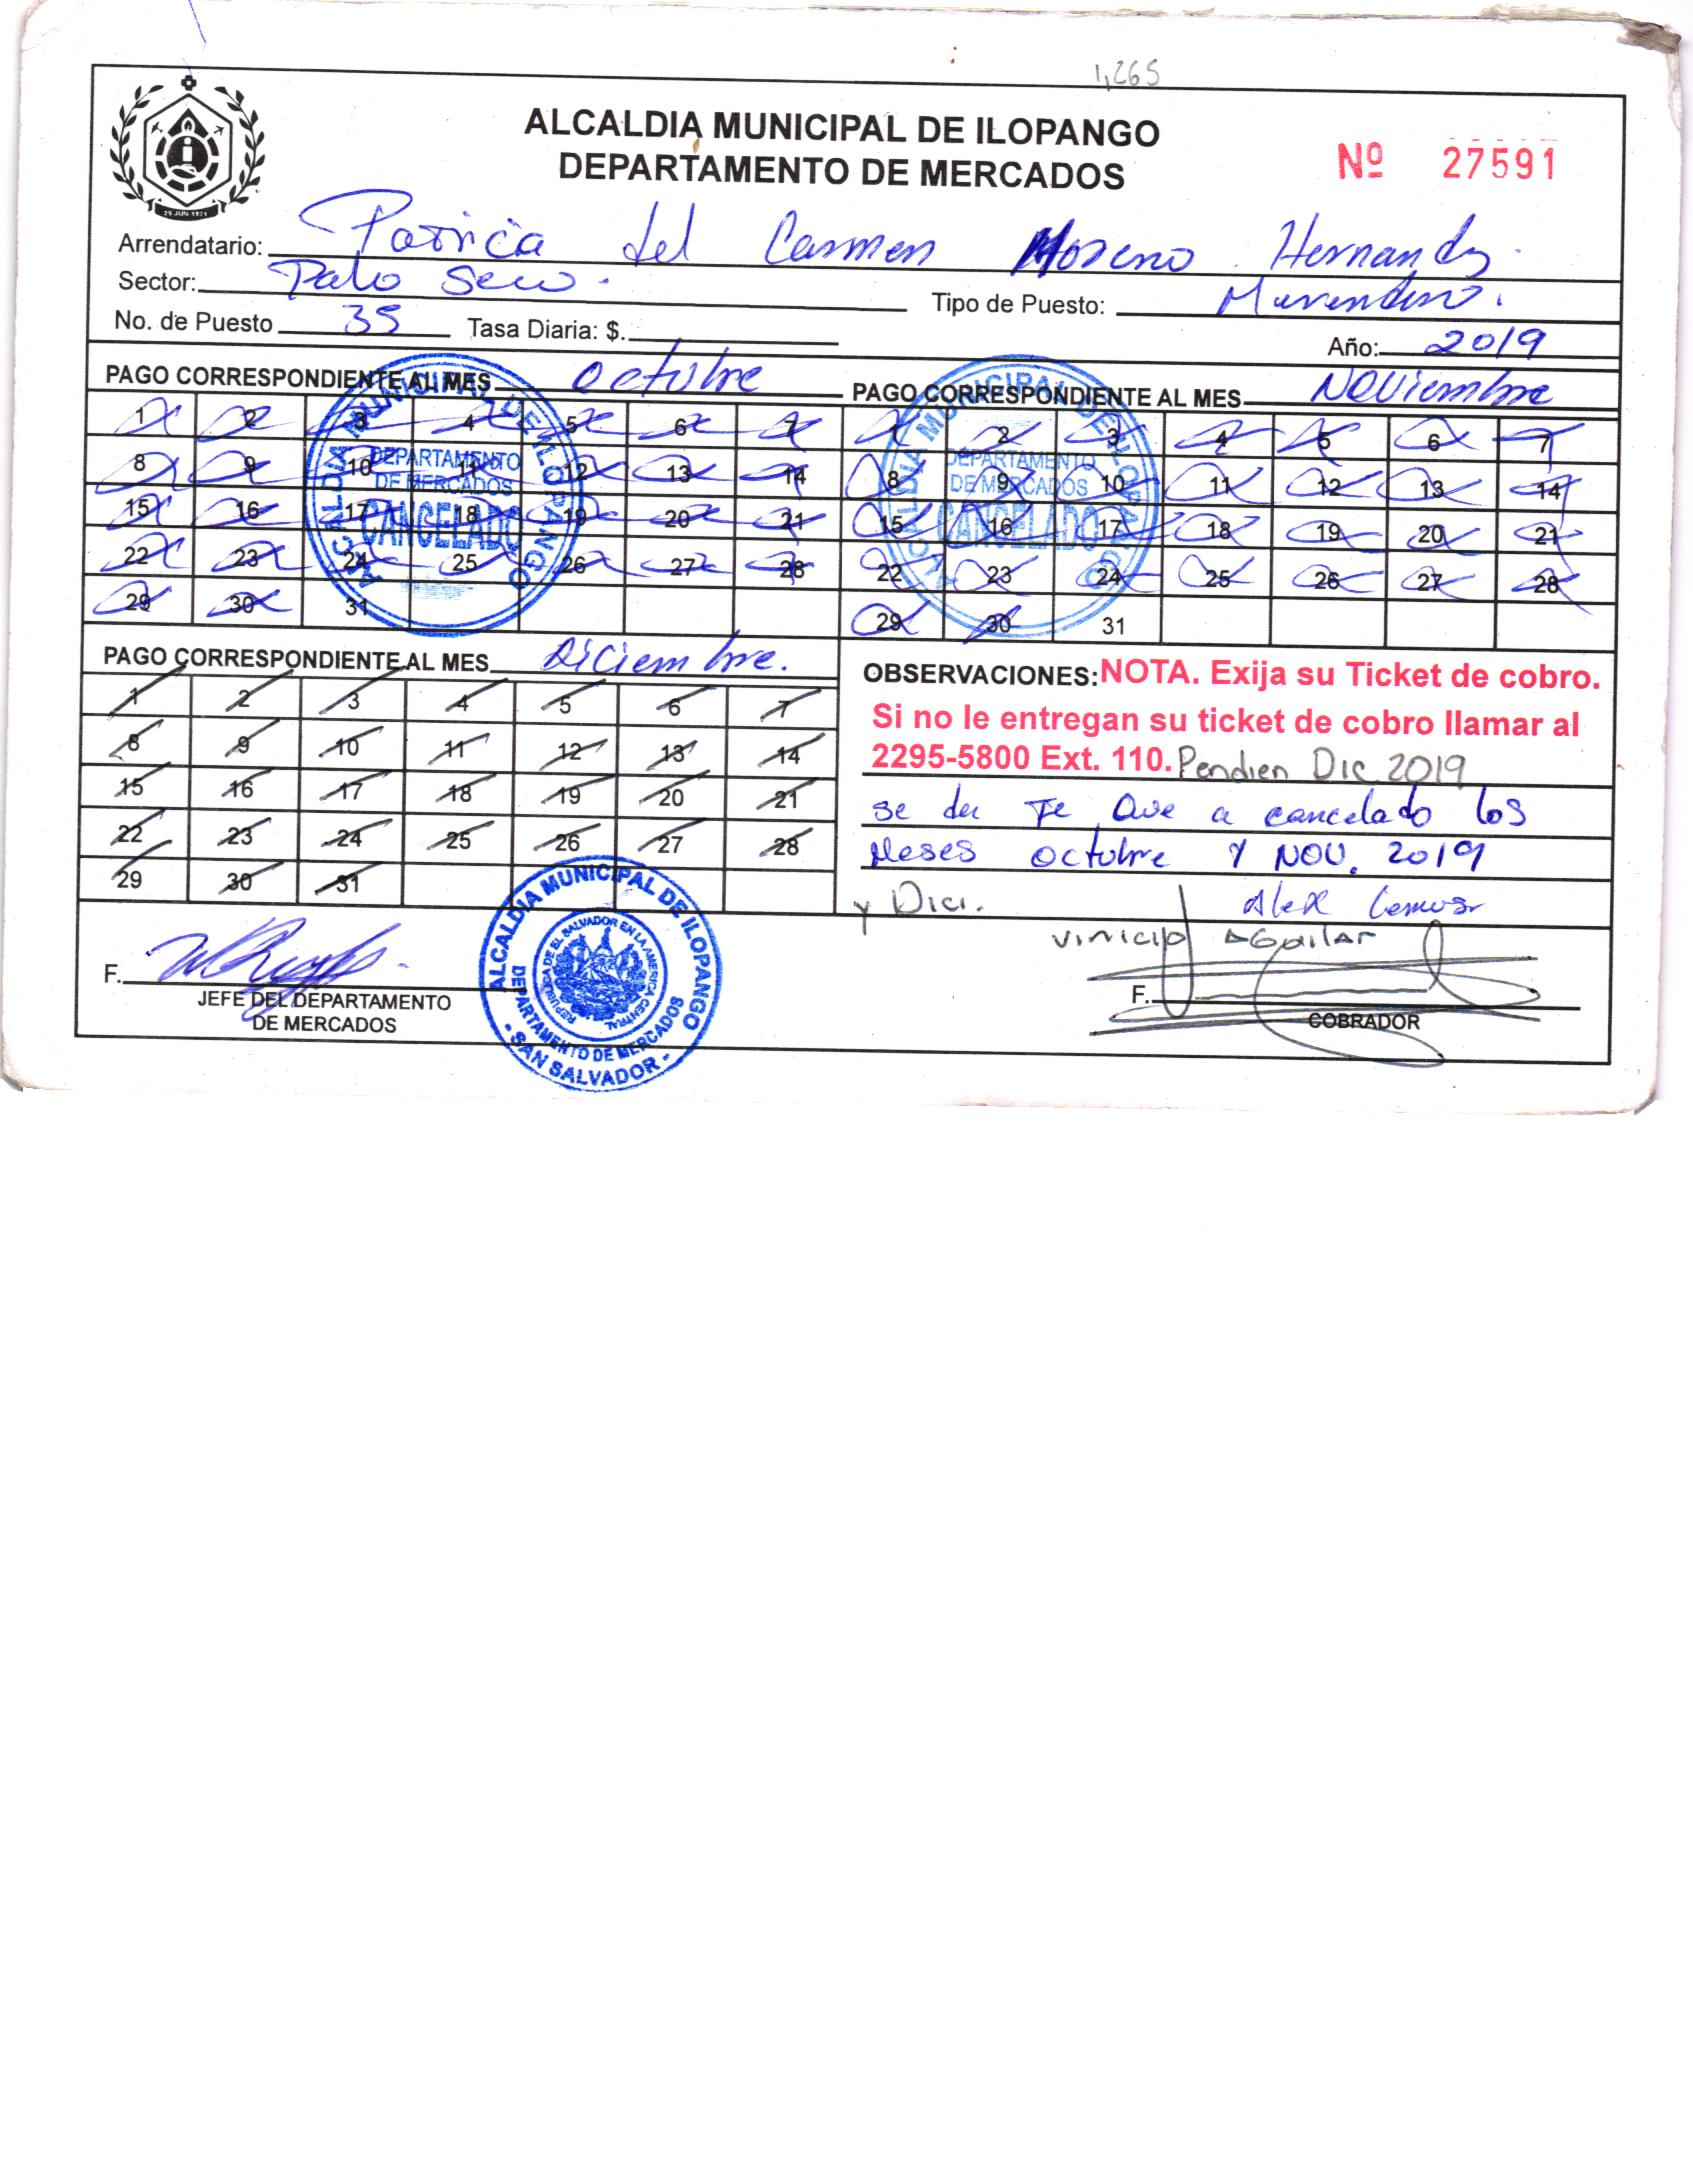 1,265
ALCALDIA MUNICIPAL DE ILOPANGO
DEPARTAMENTO DE MERCADOS
Nº 27591
29 JUN 1971
Arrendatario: Patricia del Carmen Moreno Hernandz.
Sector: Palo Seco.
Tipo de Puesto:
No. de Puesto 35 Tasa Diaria: $.
Año: 2019
PAGO CORRESPONDIENTE AL MES octubre
1 2 3 4 5 6 7
8 9 10 11 12 13 14
15 16 17 18 19 20 21
22 23 24 25 26 27 28
29 30 31
ALCALDIA MUNICIPAL DE ILOPANGO
DEPARTAMENTO
DE MERCADOS
CANCELADO
PAGO CORRESPONDIENTE AL MES Noviembre
1 2 3 4 5 6 7
8 9 10 11 12 13 14
15 16 17 18 19 20 21
22 23 24 25 26 27 28
29 30 31
ALCALDIA MUNICIPAL DE ILOPANGO
DEPARTAMENTO
DE MERCADOS
CANCELADO
PAGO CORRESPONDIENTE AL MES Diciembre.
1 2 3 4 5 6 7
8 9 10 11 12 13 14
15 16 17 18 19 20 21
22 23 24 25 26 27 28
29 30 31
OBSERVACIONES: NOTA. Exija su Ticket de cobro.
Si no le entregan su ticket de cobro llamar al
2295-5800 Ext. 110. Pendien Dic 2019
se da Fe Que a cancelado los
Meses octubre Y NOV. 2019
y Dici. Alex Lemus
vinicio AGuilar
F.
JEFE DEL DEPARTAMENTO
DE MERCADOS
ALCALDIA MUNICIPAL DE ILOPANGO
DEPARTAMENTO DE MERCADOS
REPUBLICA DE EL SALVADOR EN LA AMERICA CENTRAL
- SAN SALVADOR -
F.
COBRADOR